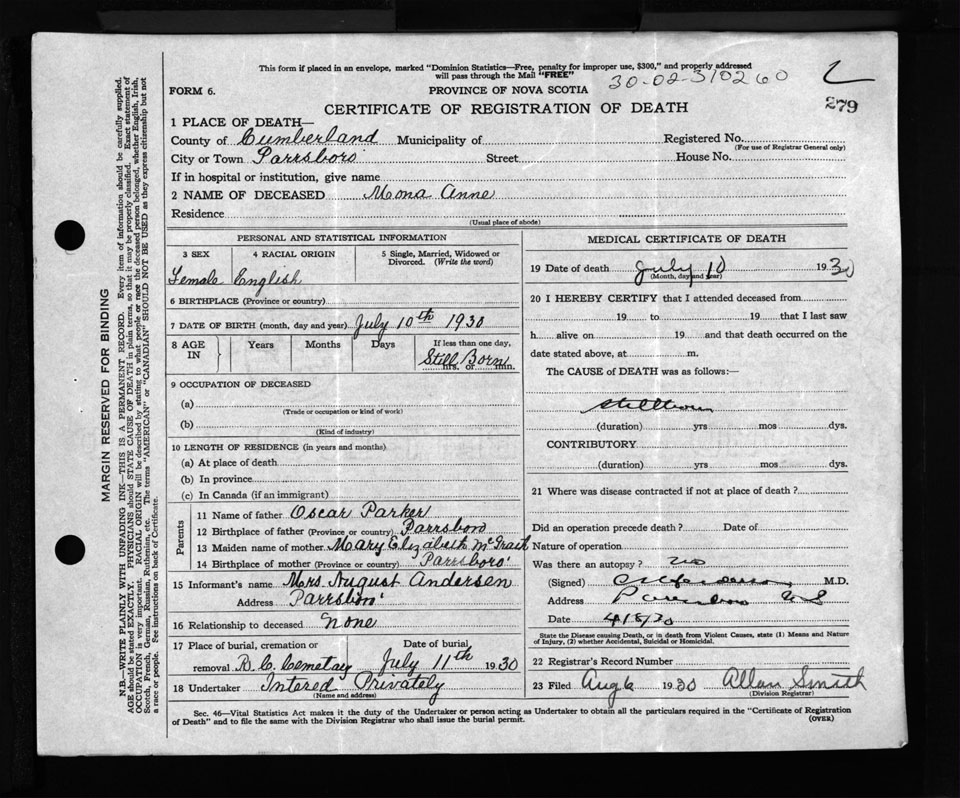 This form if placed in an envelope, marked "Dominion Statistics—Free, penalty for improper use, $300," and properly addressed
will pass through the Mail "FREE"
30-02-310260
279
FORM 6.
PROVINCE OF NOVA SCOTIA
CERTIFICATE OF REGISTRATION OF DEATH
1 PLACE OF DEATH—
County of Cumberland Municipality of Registered No.
(For use of Registrar General only)
City or Town Parrsboro Street House No.
If in hospital or institution, give name
2 NAME OF DECEASED Mona Anne
Residence
(Usual place of abode)
PERSONAL AND STATISTICAL INFORMATION
3 SEX 4 RACIAL ORIGIN 5 Single, Married, Widowed or Divorced. (Write the word)
Female English
6 BIRTHPLACE (Province or country)
7 DATE OF BIRTH (month, day and year) July 10th 1930
8 AGE IN Years Months Days If less than one day, hrs. or min.
Still Born
9 OCCUPATION OF DECEASED
(a)
(Trade or occupation or kind of work)
(b)
(Kind of industry)
10 LENGTH OF RESIDENCE (in years and months)
(a) At place of death
(b) In province
(c) In Canada (if an immigrant)
Parents
11 Name of father Oscar Parker
12 Birthplace of father (Province or country) Parrsboro
13 Maiden name of mother Mary Elizabeth McGrath
14 Birthplace of mother (Province or country) Parrsboro
15 Informant's name Mrs. August Andersen
Address Parrsboro
16 Relationship to deceased None
17 Place of burial, cremation or Date of burial
removal R. C. Cemetary July 11th 1930
18 Undertaker Intered Privately
(Name and address)
MEDICAL CERTIFICATE OF DEATH
19 Date of death July 10 1930
(Month, day and year)
20 I HEREBY CERTIFY that I attended deceased from
19 to 19 that I last saw
h alive on 19 and that death occurred on
date stated above, at m.
The CAUSE of DEATH was as follows:—
Stillborn
(duration) yrs mos dys.
CONTRIBUTORY
(duration) yrs mos dys.
21 Where was disease contracted if not at place of death?
Did an operation precede death? Date of
Nature of operation
Was there an autopsy? no
(Signed) M.D.
Address Parrsboro NS
Date 4/8/30
State the Disease causing Death, or in death from Violent Causes, state (1) Means and Nature
of Injury, (2) whether Accidental, Suicidal or Homicidal.
22 Registrar's Record Number
23 Filed Aug 6 1930 Allan Smith
(Division Registrar)
Sec. 46—Vital Statistics Act makes it the duty of the Undertaker or person acting as Undertaker to obtain all the particulars required in the "Certificate of Registration
of Death" and to file the same with the Division Registrar who shall issue the burial permit.
(OVER)
MARGIN RESERVED FOR BINDING
N.B.—WRITE PLAINLY WITH UNFADING INK—THIS IS A PERMANENT RECORD. Every item of information should be carefully supplied.
AGE should be stated EXACTLY. PHYSICIANS should STATE CAUSE OF DEATH in plain terms, so that it may be properly classified. Exact statement of
OCCUPATION is very important. RACIAL ORIGIN will be described by stating to what people or race the deceased person belonged, whether English, Irish,
Scotch, French, German, Russian, Ruthenian, etc. The terms "AMERICAN" or "CANADIAN" SHOULD NOT BE USED as they express citizenship but not
a race or people. See instructions on back of Certificate.